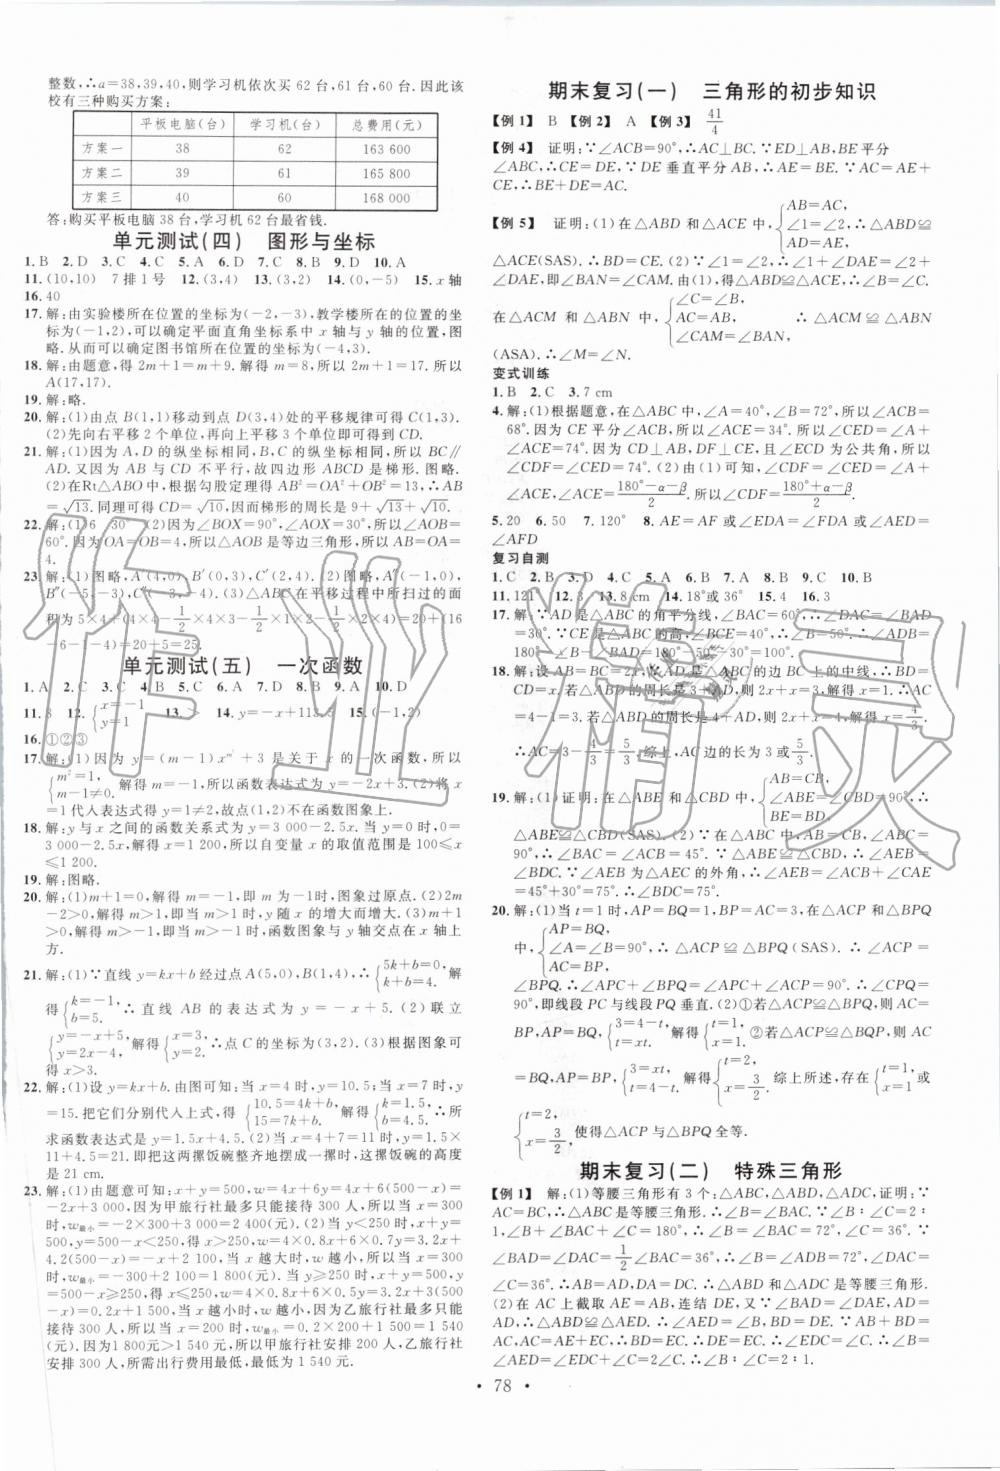 整数,∴a=38,39,40,则学习机依次买 62 台,61 台,60 台. 因此该
校有三种购买方案:
平板电脑(台) 学习机(台) 总费用(元)
方案一 38 62 163 600
方案二 39 61 165 800
方案三 40 60 168 000
答:购买平板电脑 38 台,学习机 62 台最省钱.
单元测试(四) 图形与坐标
1. B 2. D 3. C 4. C 5. A 6. D 7. B 8. B 9. D 10. A
11. (10,10) 7 排 1 号 12. (3,4) 13. (3,2) 14. (0,-5) 15. x 轴
16. 40
17. 解:由实验楼所在位置的坐标为(-2,-3),教学楼所在的位置的坐
标为(-1,2),可以确定平面直角坐标系中 x 轴与 y 轴的位置,图
略. 从而可以确定图书馆所在位置的坐标为(-4,3).
18. 解:由题意,得 2m+1=m+9. 解得 m=8,所以 2m+1=17. 所以
A(17,17).
19. 解:略.
20. 解:(1)由点 B(1,1)移动到点 D(3,4)处的平移规律可得 C(1,3).
(2)先向右平移 2 个单位,再向上平移 3 个单位即可得到 CD.
21. 解:(1)因为 A,D 的纵坐标相同,B,C 的纵坐标相同,所以 BC∥
AD. 又因为 AB 与 CD 不平行,故四边形 ABCD 是梯形. 图略.
(2)在Rt△ABO 中,根据勾股定理得 AB²=OA²+OB²=13,∴AB
=√13. 同理可得 CD=√10,因而梯形的周长是 9+√13+√10.
22. 解:(1)6 30 (2)因为∠BOX=90°,∠AOX=30°,所以∠AOB=
60°. 因为 OA=OB=4,所以△AOB 是等边三角形,所以 AB=OA=
4.
23. 解:(1)图略,A′(4,0),B′(0,3),C′(2,4). (2)图略,A″(-1,-8),
B″(-5,-3),C″(-3,-4). (3)△ABC 在平移过程中所扫过的面
积为 5×4+(4×4-1/2×4×3-1/2×1×3-1/2×2×4)=20+(16
-6-1.5-4)=20+5=25.
单元测试(五) 一次函数
1. A 2. C 3. C 4. B 5. C 6. A 7. D 8. B 9. A 10. D
11. 3 12. {x=-1, y=1 14. y=-x+1 15. (-1,2)
16. ①②③
17. 解:(1)因为 y=(m-1)x^m²+3 是关于 x 的一次函数,所以
{m²=1, m-1≠0. 解得 m=-1,所以函数表达式为 y=-2x+3. (2)将 x
=1 代入表达式得 y=1≠2,故点(1,2)不在函数图象上.
18. 解:y 与 x 之间的函数关系式为 y=3 000-2.5x. 当 y=0 时,0=
3 000-2.5x. 解得 x=1 200,所以自变量 x 的取值范围是 100≤x
≤1 200.
19. 解:图略.
20. 解:(1)m+1=0,解得 m=-1,即 m 为-1时,图象过原点. (2)2m
-2>0,解得 m>1,即 m>1时,y 随 x 的增大而增大. (3)由题意得
m+1>0,解得 m>-1,即 m>-1时,函数图象与 y 轴交点在 x 轴上
方.
21. 解:(1)∵直线 y=kx+b 经过点 A(5,0),B(1,4),∴{5k+b=0, k+b=4. 解
得{k=-1, b=5. ∴直线 AB 的表达式为 y=-x+5. (2)联立
{y=-x+5, y=2x-4, 解得{x=3, y=2. ∴点 C 的坐标为(3,2). (3)根据图象可
得 x>3.
22. 解:(1)设 y=kx+b. 由图可知:当 x=4 时,y=10.5;当 x=7 时,y
=15. 把它们分别代入上式,得{10.5=4k+b, 15=7k+b. 解得{k=1.5, b=4.5. ∴所
求函数表达式是 y=1.5x+4.5. (2)当 x=4+7=11 时,y=1.5×
11+4.5=21. 即把这两摞饭碗整齐地摆成一摞时,这摞饭碗的高度
是 21 cm.
23. 解:(1)由题意可知:x+y=500,w=4x+6y=4x+6(500-x)=
-2x+3 000,因为甲旅行社最多只能接待 300 人,所以当 x=300
时,w最小=-2×300+3 000=2 400(元). (2)当 y<250 时,x+y=
500,得 x>250,所以 w=0.8×4x+0.7×6y=3.2x+4.2y=3.2x+
4.2(500-x)=-x+2 100,当 x 越大时,w 越小,当 x=300 时,
w最小=-300+2 100=1 800(元). 当 y≥250 时,x+y=500,x=500-y,
500-x≥250. 得 x≤250,w=0.8×4x+0.5×6y=3.2x+3y=
0.2x+1 500. 当 x 越小时,w 越小,因为乙旅行社最多只能
接待 300 人,所以当 x=200 时,w最小=0.2×200+1 500=1 540
(元). 因为1 800元>1 540元,所以甲旅行社安排 200 人,乙旅行社
安排 300 人,所需出行费用最低,最低为 1 540 元.
期末复习(一) 三角形的初步知识
【例 1】 B 【例 2】 A 【例 3】 41/4
【例 4】 证明:∵∠ACB=90°,∴AC⊥BC. ∵ED⊥AB,BE平分
∠ABC,∴CE=DE. ∵DE 垂直平分 AB,∴AE=BE. ∵AC=
AE+CE,∴BE+DE=AC.
【例 5】 证明:(1)在△ABD 和△ACE 中,{AB=AC, ∠1=∠2, AD=AE, ∴△ABD≌
△ACE(SAS). ∴BD=CE. (2)∵∠1=∠2,∴∠1+∠DAE=∠2+
∠DAE,即∠BAN=∠CAM. 由(1),得△ABD≌△ACE,∴∠B=∠C.
在△ACM 和△ABN 中,{∠C=∠B, AC=AB, ∠CAM=∠BAN, ∴△ACM≌△ABN
(ASA). ∴∠M=∠N.
变式训练
1. B 2. C 3. 7 cm
4. 解:(1)根据题意,在△ABC 中,∠A=40°,∠B=72°,所以∠ACB=
68°. 因为 CE 平分∠ACB,所以∠ACE=34°. 所以∠CED=∠A+
∠ACE=74°. 因为 CD⊥AB,DF⊥CE,且∠ECD 为公共角,所以
∠CDF=∠CED=74°. (2)由(1)可知,∠CDF=∠CED=∠A+
∠ACE,∠ACE=(180°-α-β)/2. 所以∠CDF=(180°+α-β)/2.
5. 20 6. 50 7. 120° 8. AE=AF 或∠EDA=∠FDA 或∠AED=
∠AFD
复习自测
1. C 2. B 3. D 4. C 5. A 6. B 7. A 8. B 9. C 10. B
11. 121° 12. 3 13. 8 cm 14. 18°或36° 15. 4 16. 3
17. 解:∵AD 是△ABC 的角平分线,∠BAC=60°,∴∠DAC=∠BAD
=30°. ∵CE 是△ABC 的高,∠BCE=40°,∴∠B=50°. ∴∠ADB=
180°-∠B-∠BAD=180°-50°-30°=100°.
18. 解:设 AB=BC=2x,∵AD 是△ABC 的边 BC 上的中线,∴BD=CD
=x. 若△ABD 的周长是 3+1=4,则 2x+x=3,解得 x=1. ∴AC
=4-1=3. 若△ABD 的周长是 4,则 2x+x=4,解得 x=4/3.
∴AC=3-4/3=5/3. 综上,AC 边的长为 3 或5/3.
19. 解:(1)证明:在△ABE 和△CBD 中,{AB=CB, ∠ABE=∠CBD, BE=BD, ∴
△ABE≌△CBD(SAS). (2)∵在△ABC 中,AB=CB,∠ABC=
90°,∴∠BAC=∠ACB=45°. ∵△ABE≌△CBD,∴∠AEB=
∠BDC. ∵∠AEB 为△AEC 的外角,∴∠AEB=∠ACB+∠CAE
=45°+30°=75°. ∴∠BDC=75°.
20. 解:(1)当 t=1时,AP=BQ=1,BP=AC=3,在△ACP 和△BPQ
中,{AP=BQ, ∠A=∠B=90°, AC=BP, ∴△ACP≌△BPQ(SAS). ∴∠ACP=
∠BPQ. ∴∠APC+∠BPQ=∠APC+∠ACP=90°. ∴∠CPQ=
90°,即线段 PC 与线段 PQ 垂直. (2)①若△ACP≌△BPQ,则 AC=
BP,AP=BQ,{3=4-t, t=xt. 解得{t=1, x=1. ②若△ACP≌△BQP,则 AC
=BQ,AP=BP,{3=xt, t=4-t. 解得{t=2, x=3/2. 综上所述,存在{t=1, x=1或
{t=2, x=3/2 使得△ACP 与△BPQ 全等.
期末复习(二) 特殊三角形
【例 1】 解:(1)等腰三角形有 3 个:△ABC,△ABD,△ADC,证明:∵
AC=BC,∴△ABC 是等腰三角形. ∴∠B=∠BAC. ∵∠B∶∠C=2∶
1,∠B+∠BAC+∠C=180°,∴∠B=∠BAC=72°,∠C=36°. ∵
∠BAD=∠DAC=1/2∠BAC=36°,∴∠B=∠ADB=72°,∠DAC=
∠C=36°. ∴AB=AD,DA=DC. ∴△ABD 和△ADC 是等腰三角形.
(2)在 AC 上截取 AE=AB,连结 DE,又∵∠BAD=∠DAE,AD=
AD,∴△ABD≌△AED. ∴∠AED=∠B,BD=DE. ∵AB+BD=
AC,AC=AE+EC,∴BD=EC. ∴DE=EC. ∴∠EDC=∠C. ∴∠B
=∠AED=∠EDC+∠C=2∠C,即∠B∶∠C=2∶1.
• 78 •